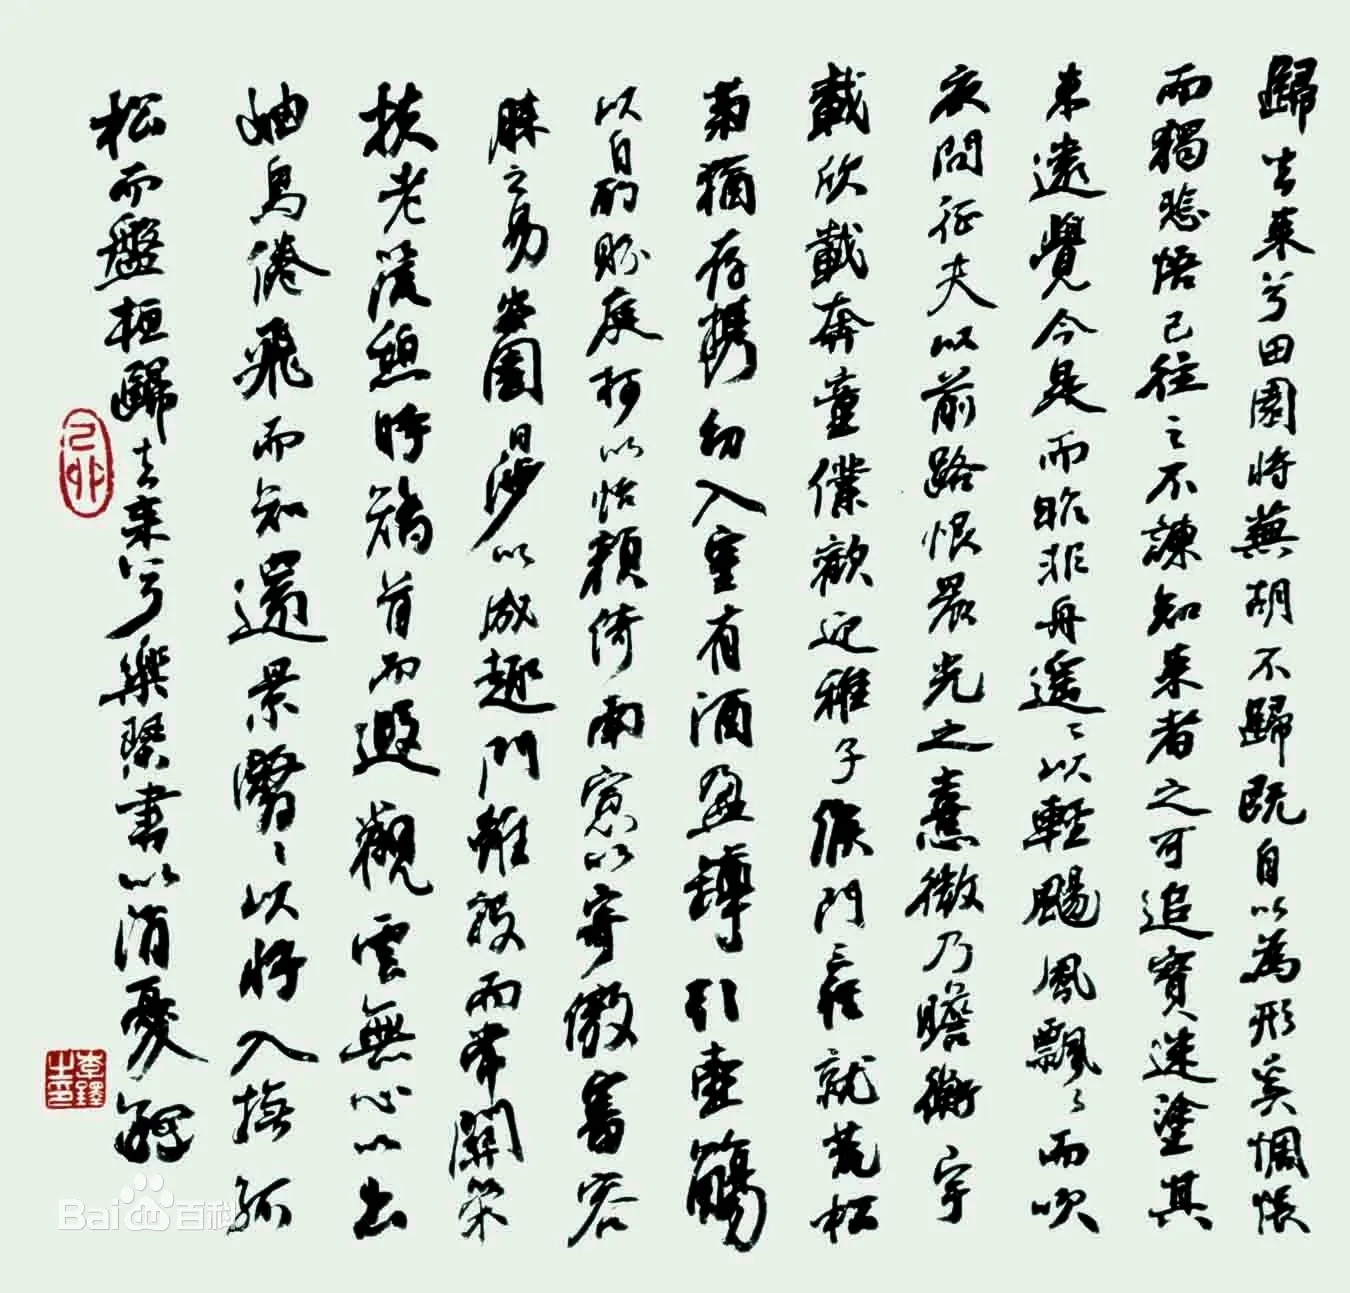 歸去來兮田園將蕪胡不歸既自以為形奚惆悵
而獨悲悟已往之不諫知來者之可追實迷塗其
未遠覺今是而昨非舟遙〻以輕颺風飄〻而吹
衣問征夫以前路恨晨光之熹微乃瞻衡宇
載欣載奔童僕歡迎稚子候門三徑就荒松
菊猶存攜幼入室有酒盈罇引壺觴
以自酌眄庭柯以怡顏倚南窗以寄傲審容
膝之易安園日涉以成趣門雖設而常關策
扶老憩時矯首而遐觀雲無心以出
岫鳥倦飛而知還景翳〻以將入撫孤
松而盤桓歸去來兮樂琴書以消憂
己卯
李鐸之印
Baidu百科